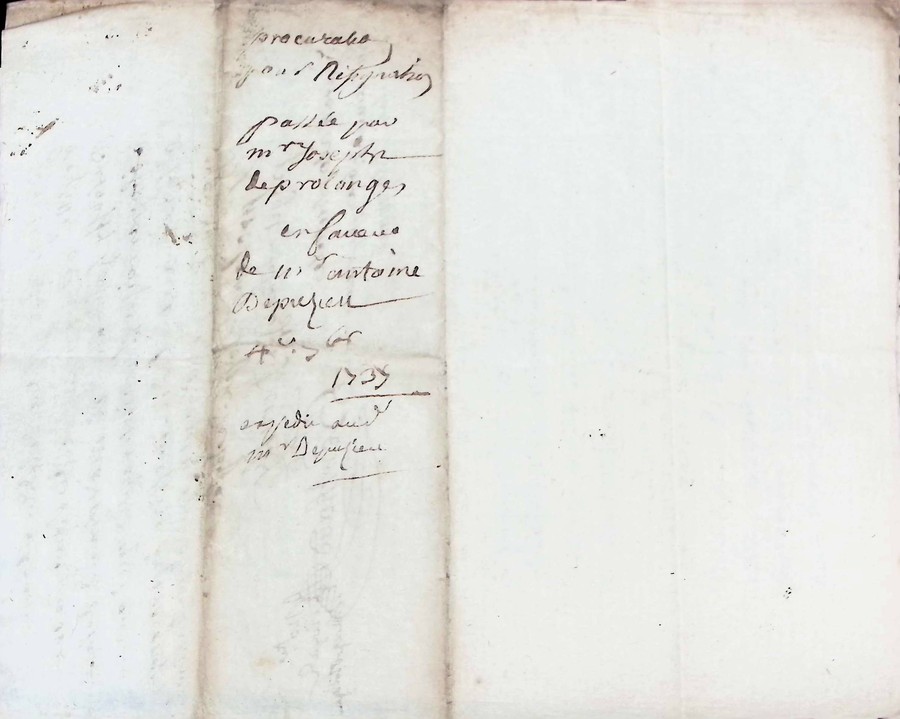 procuratio
pour Resignatio
passée par
mr Joseph
deprolanges
en faveur
de mr antoine
Depuzieu
4e 7bre
1737
expedié audt
mr Depuzieu